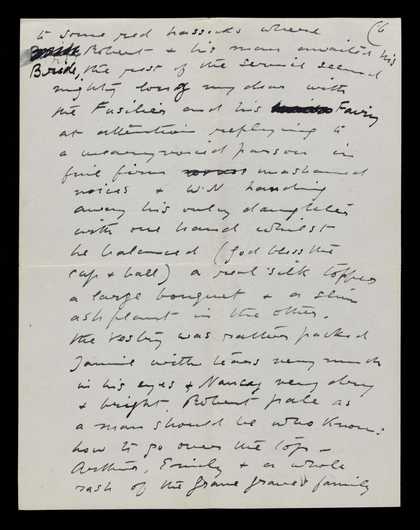 (6
to some red hassocks where
Robert & his man awaited his
Bride, the rest of the service seemed
mighty long my dear with
the Fusilier and his Fairy
at attention replying to
a weary voiced parson in
fine firm unashamed
voices & W.N handing
away his only daughter
with one hand whilst
he balanced (God bless the
cap & ball) a red silk topper
a large bouquet & a slim
ash plant in the other.
The Vestry was rather packed
Jamie with tears very much
in his eyes & Nancy very dewy
& bright, Robert pale as
a man should be who knows
how to go over the top –
Arthur, Emily & a whole
rash of the Graves family